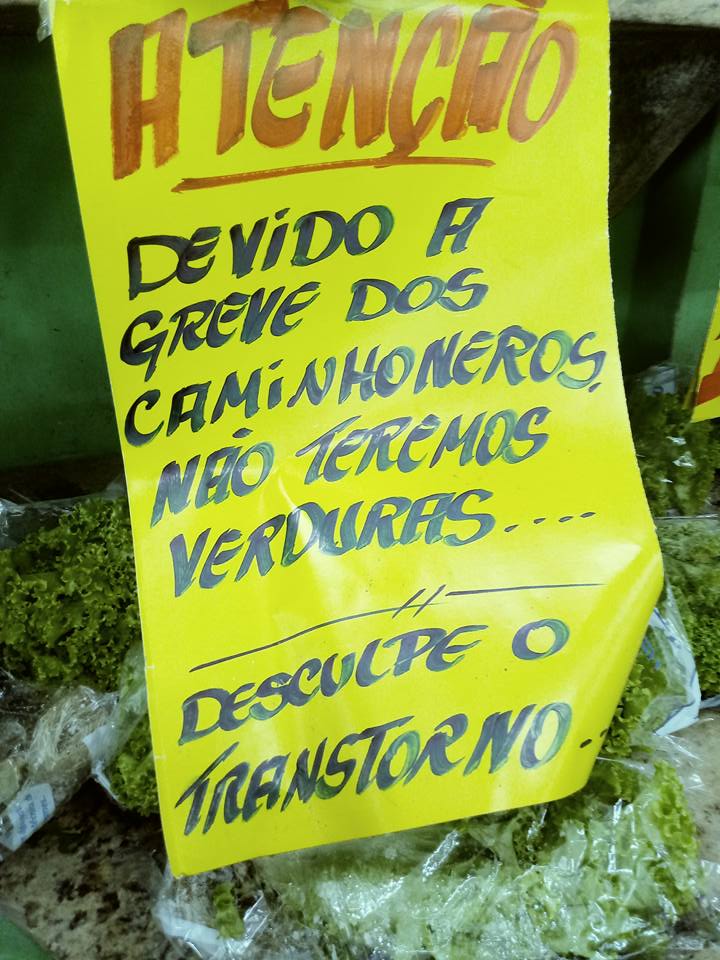 ATENÇÃO
DEVIDO A
GREVE DOS
CAMINHONEROS,
NÃO TEREMOS
VERDURAS....
DESCULPE O
TRANSTORNO..